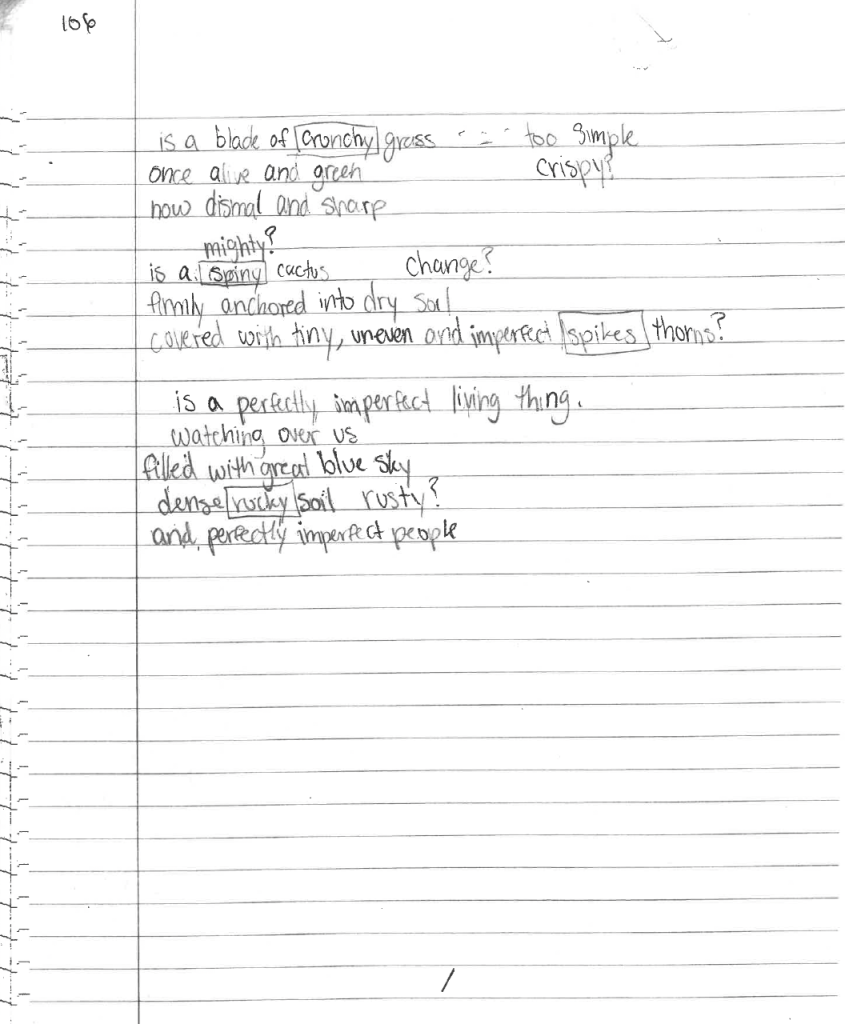 106
is a blade of crunchy grass - = - too simple
once alive and green crispy?
now dismal and sharp
mighty?
is a spiny cactus change?
firmly anchored into dry soil
covered with tiny, uneven and imperfect spikes thorns?
is a perfectly imperfect living thing.
watching over us
filled with great blue sky
dense rocky soil rusty?
and perfectly imperfect people